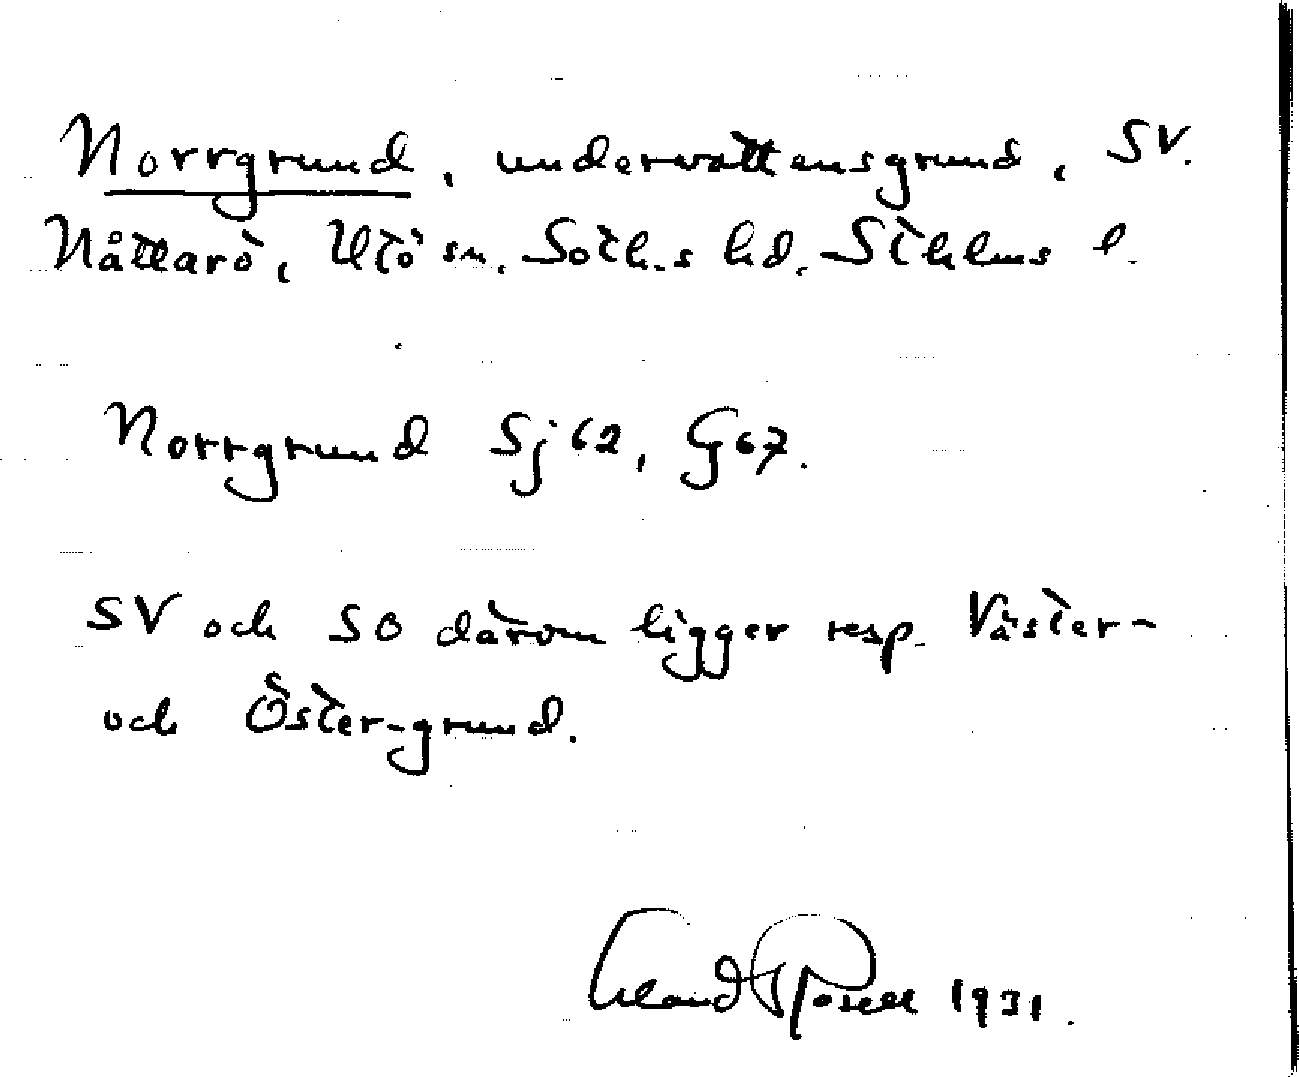 Norrgrund, undervattensgrund, SV.
Nåttarö, Utö sn, Soth.s hd, Sthlms l.
Norrgrund Sj 62, G 67.
SV och SO därom ligger resp. Väster-
och Öster-grund.
Erland Rosell 1931.